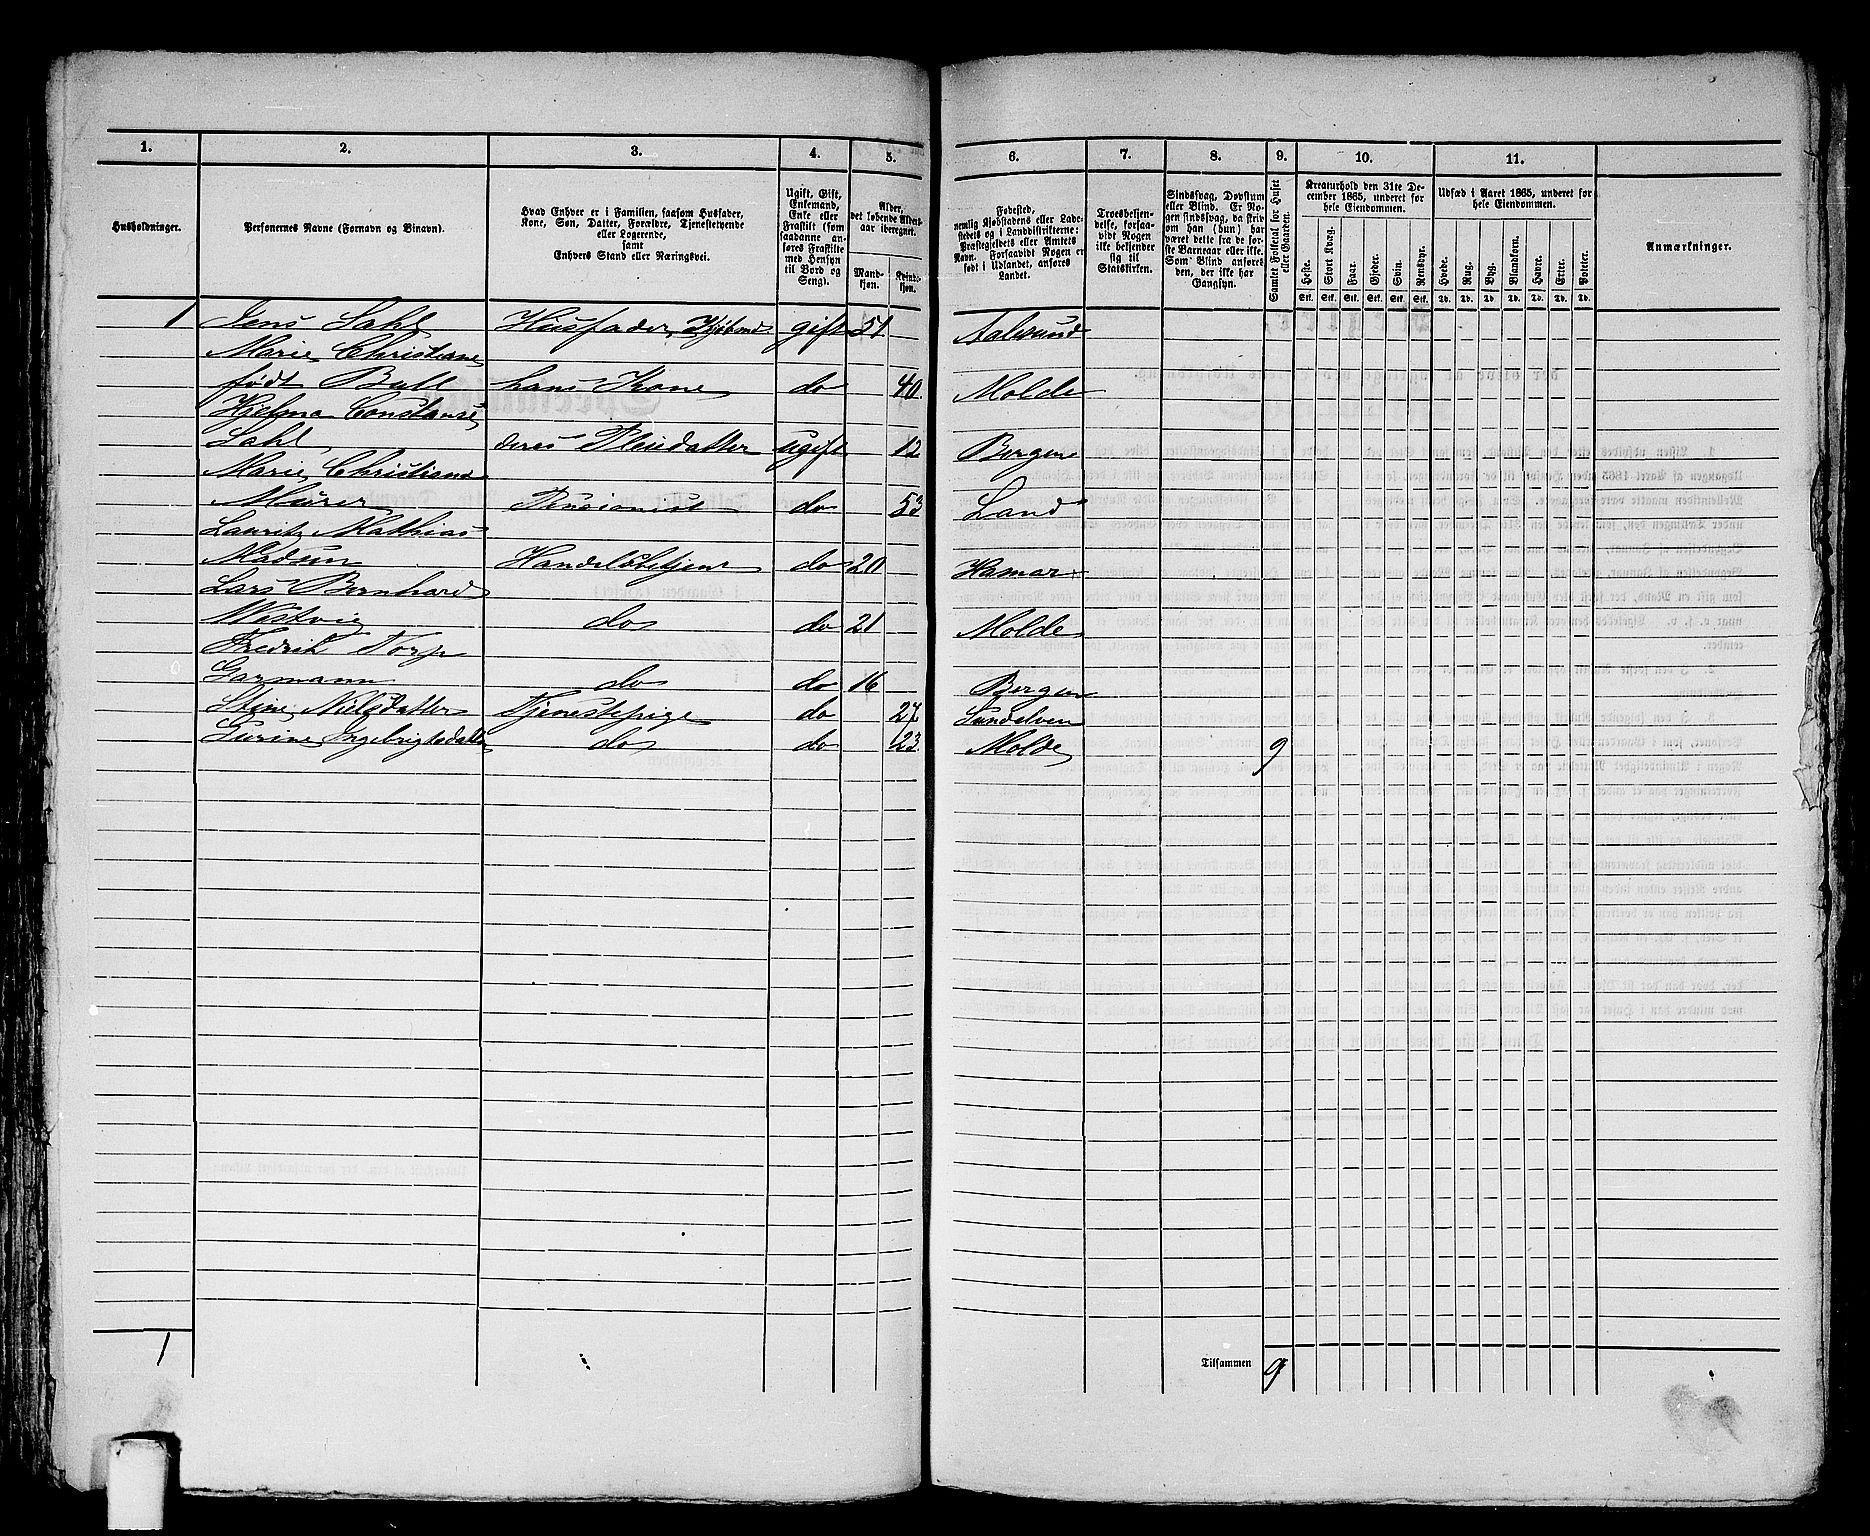 1. 2. 3. 4. 5. 6. 7. 8. 9. 10. 11.
Husholdninger.
Personernes Navne (Fornavn og Binavn).
Hvad Enhver er i Familien, saasom Husfader,
Kone, Søn, Datter, Forældre, Tjenestetyende
eller Logerende,
samt
Enhvers Stand eller Næringsvei.
Ugift, Gift,
Enkemand,
Enke eller
Fraskilt (som
saadanne an-
føres Fraskilte
med Hensyn
til Bord og
Seng).
Alder,
det løbende Alders-
aar iberegnet.
Mand-
kjøn.
Kvinde-
kjøn.
Fødested,
nemlig Kjøbstadens eller Lade-
stedets og i Landdistrikterne:
Præstegjeldets eller Amtets
Navn. Forsaavidt Nogen er
født i Udlandet, anføres
Landet.
Troesbekjen-
delse, forsaa-
vidt Nogen
ikke bekjender
sig til
Statskirken.
Sindssvag, Døvstum
eller Blind. Er No-
gen sindssvag, da skriv
om han (hun) har
været dette fra de før-
ste Barneaar eller ikke.
Som Blind anføres
den, der ikke har
Gangsyn.
Samlet Folketal for Huset
eller Gaarden.
Kreaturhold den 31te De-
cember 1865, underet for
hele Eiendommen.
Heste. Stort Kvæg. Faar. Gjeder. Svin. Rensdyr.
Stk. Stk. Stk. Stk. Stk. Stk.
Udsæd i Aaret 1865, underet for
hele Eiendommen.
Hvede. Rug. Byg. Blandkorn. Havre. Erter. Poteter.
Td. Td. Td. Td. Td. Td. Td.
Anmærkninger.
1 Jens Dahl Husfader, Kjøbmd gift 51 Aalesund
Marie Christiane
født Bull hans Kone do 40 Molde
Hjelma Constanse
Dahl deres Pleiedatter ugift 12 Bergen
Marie Christiane
Meurer Pensionist do 53 Land
Lauritz Mathias
Madsen Handelsbetjent do 20 Hamar
Lars Bernhard
Westvig do 21 Molde
Fredrik Torp
Garmann do do 16 Bergen
Stine Nielsdatter Tjenestepige do 27 Sundelven
Gurine Ingebrigtsdatter do do 23 Molde 9
1 Tilsammen 9